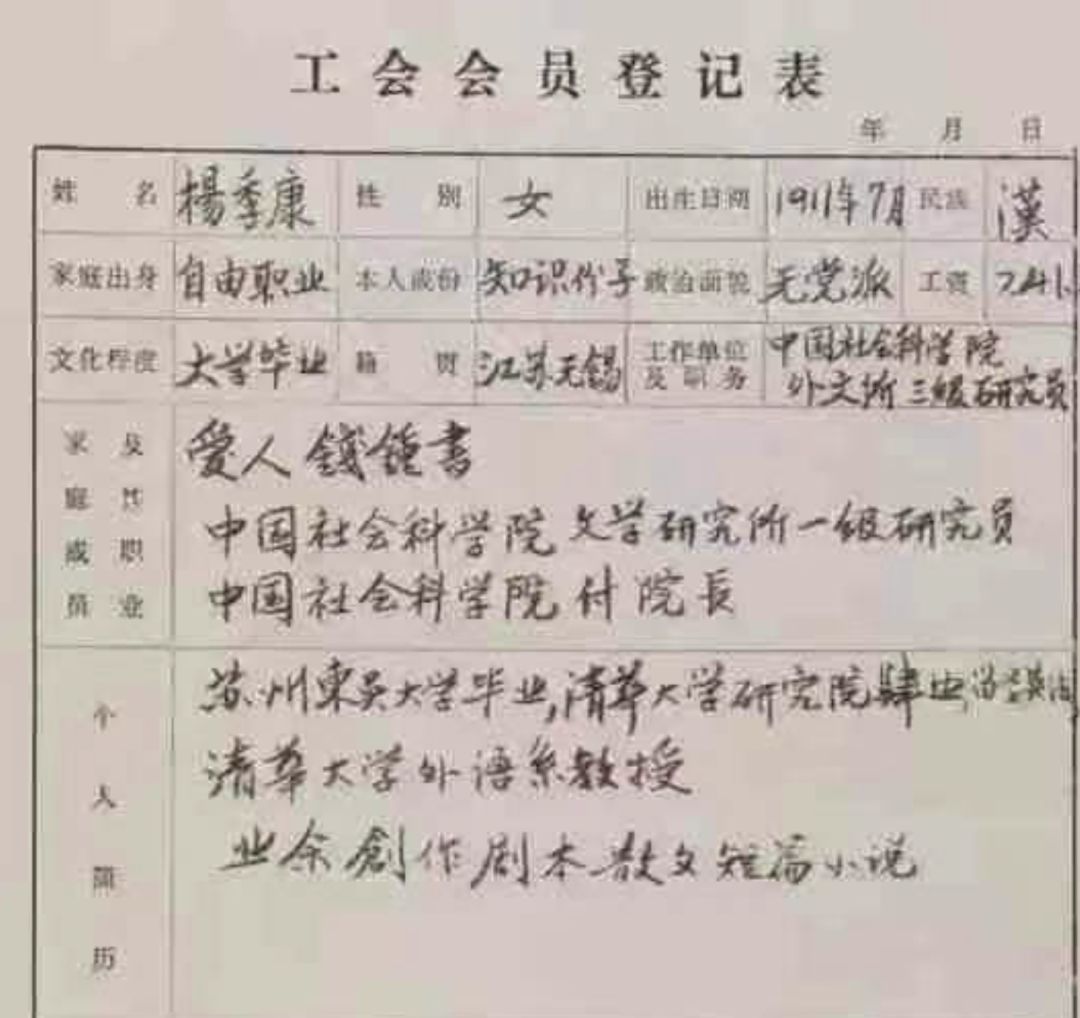 工会会员登记表
年 月 日
姓名 楊季康 性别 女 出生日期 1911年7月 民族 漢
家庭出身 自由职业 本人成份 知识份子 政治面貌 无党派 工资 241
文化程度 大学毕业 籍贯 江苏无锡 工作单位及职务 中国社会科学院
外文所 三级研究员
家庭成员及其职业 愛人 錢鍾書
中国社会科学院 文学研究所一级研究员
中国社会科学院 付院長
个人简历 苏州東吴大学毕业,清華大学研究院肆业,
清華大学外语系教授
业余創作剧本散文短篇小说